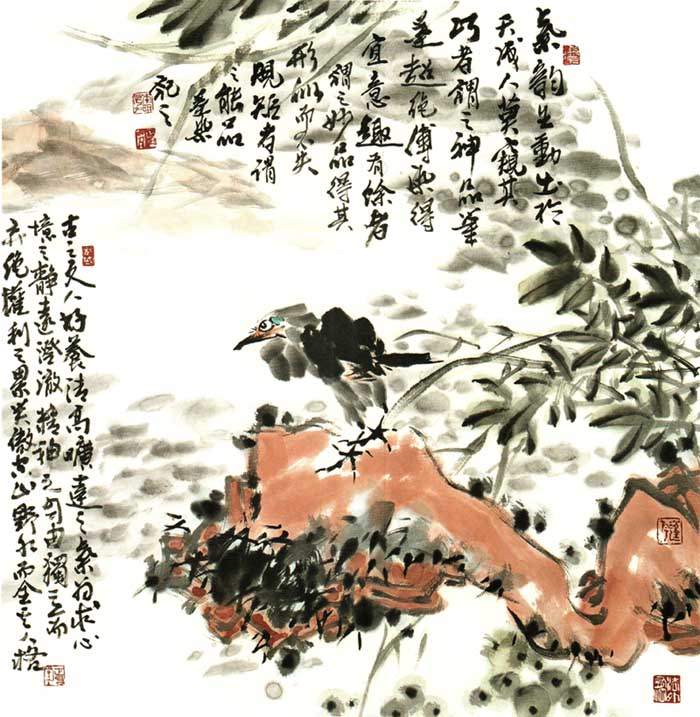 氣韵生動出於
天成人莫窺其
巧者謂之神品筆
墨超絶傅染得
宜意趣有餘者
謂之妙品得其
形似而不失
規矩者謂
之能品
古之文人好養清高曠達之氣為求心
境之静遠澄澈精神之自由獨立而
弃絶權利之累笑傲于山野水而全其人格